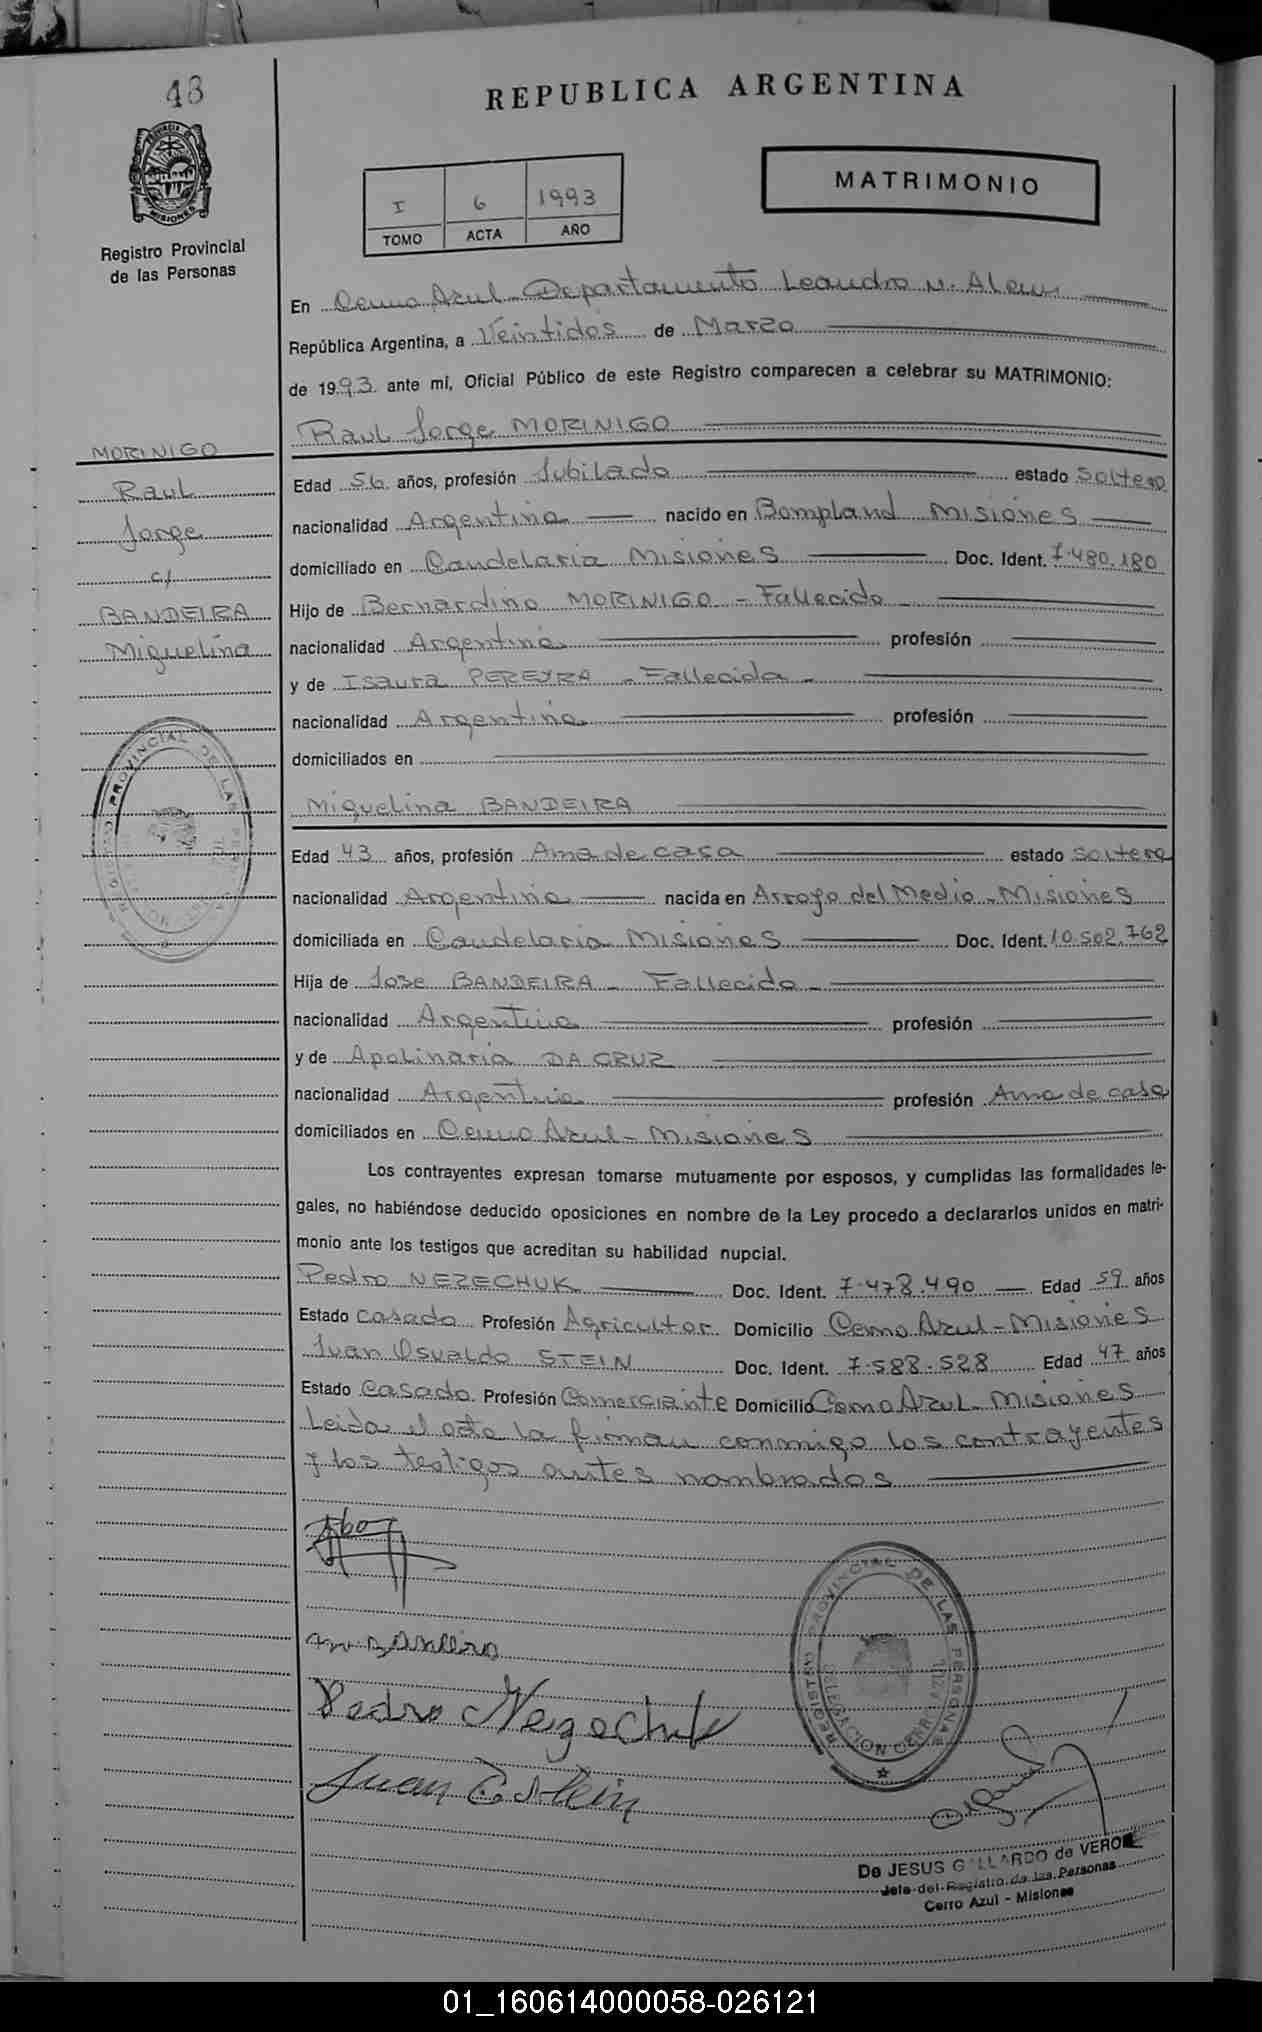 48
REPUBLICA ARGENTINA
PROVINCIA DE
MISIONES
Registro Provincial
de las Personas
I 6 1993
TOMO ACTA AÑO
MATRIMONIO
En Cerro Azul - Departamento Leandro N. Alem
República Argentina, a Veintidós de Marzo
de 1993 ante mí, Oficial Público de este Registro comparecen a celebrar su MATRIMONIO:
Raul Jorge MORINIGO
MORINIGO
Raul
Jorge
c/
BANDEIRA
Miguelina
Edad 56 años, profesión Jubilado estado Soltero
nacionalidad Argentina nacido en Bompland Misiones
domiciliado en Candelaria Misiones Doc. Ident. 7.480.180
Hijo de Bernardino MORINIGO - Fallecido -
nacionalidad Argentina profesión
y de Isaura PEREYRA - Fallecida -
nacionalidad Argentina profesión
domiciliados en
Miguelina BANDEIRA
Edad 43 años, profesión Ama de casa estado soltera
nacionalidad Argentina nacida en Arroyo del Medio - Misiones
domiciliada en Candelaria Misiones Doc. Ident. 10.502.762
Hija de Jose BANDEIRA - Fallecido -
nacionalidad Argentina profesión
y de Apolinaria DA CRUZ
nacionalidad Argentina profesión Ama de casa
domiciliados en Cerro Azul - Misiones
Los contrayentes expresan tomarse mutuamente por esposos, y cumplidas las formalidades le-
gales, no habiéndose deducido oposiciones en nombre de la Ley procedo a declararlos unidos en matri-
monio ante los testigos que acreditan su habilidad nupcial.
Pedro NEZECHUK Doc. Ident. 7.478.490 Edad 59 años
Estado Casado Profesión Agricultor Domicilio Cerro Azul - Misiones
Juan Osvaldo STEIN Doc. Ident. 7.588.528 Edad 47 años
Estado Casado Profesión Comerciante Domicilio Cerro Azul - Misiones
Leida el acta la firman conmigo los contrayentes
y los testigos antes nombrados
Pedro Nezechuk
Juan O Stein
REGISTRO PROVINCIAL DE LAS PERSONAS
DELEGACION CERRO AZUL
De JESUS GALLARDO de VERO
Jefe del Registro de las Personas
Cerro Azul - Misiones
01_160614000058-026121